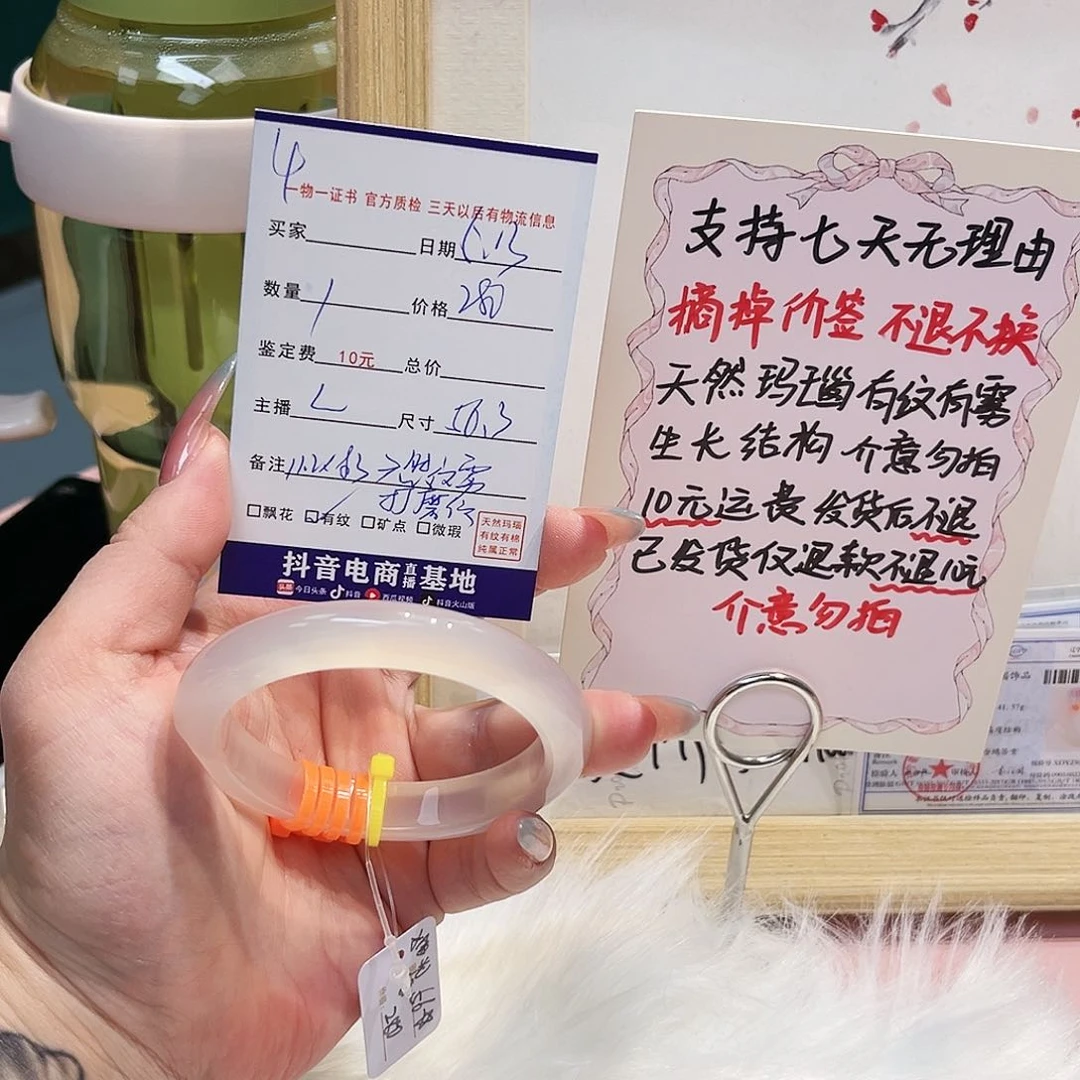 4
一物一证书 官方质检 三天以后有物流信息
买家 日期 5.13
数量 1 价格 280
鉴定费 10元 总价
主播 L 尺寸 56.3
备注
□飘花 ☑有纹 □矿点 □微瑕
天然玛瑙
有纹有棉
纯属正常
抖音电商直播基地
头条 今日头条 抖音 西瓜视频 抖音火山版
支持七天无理由
摘掉价签 不退不换
天然玛瑙有纹有雾
生长结构 介意勿拍
10元运费 发货后不退
已发货仅退款不退10元
介意勿拍